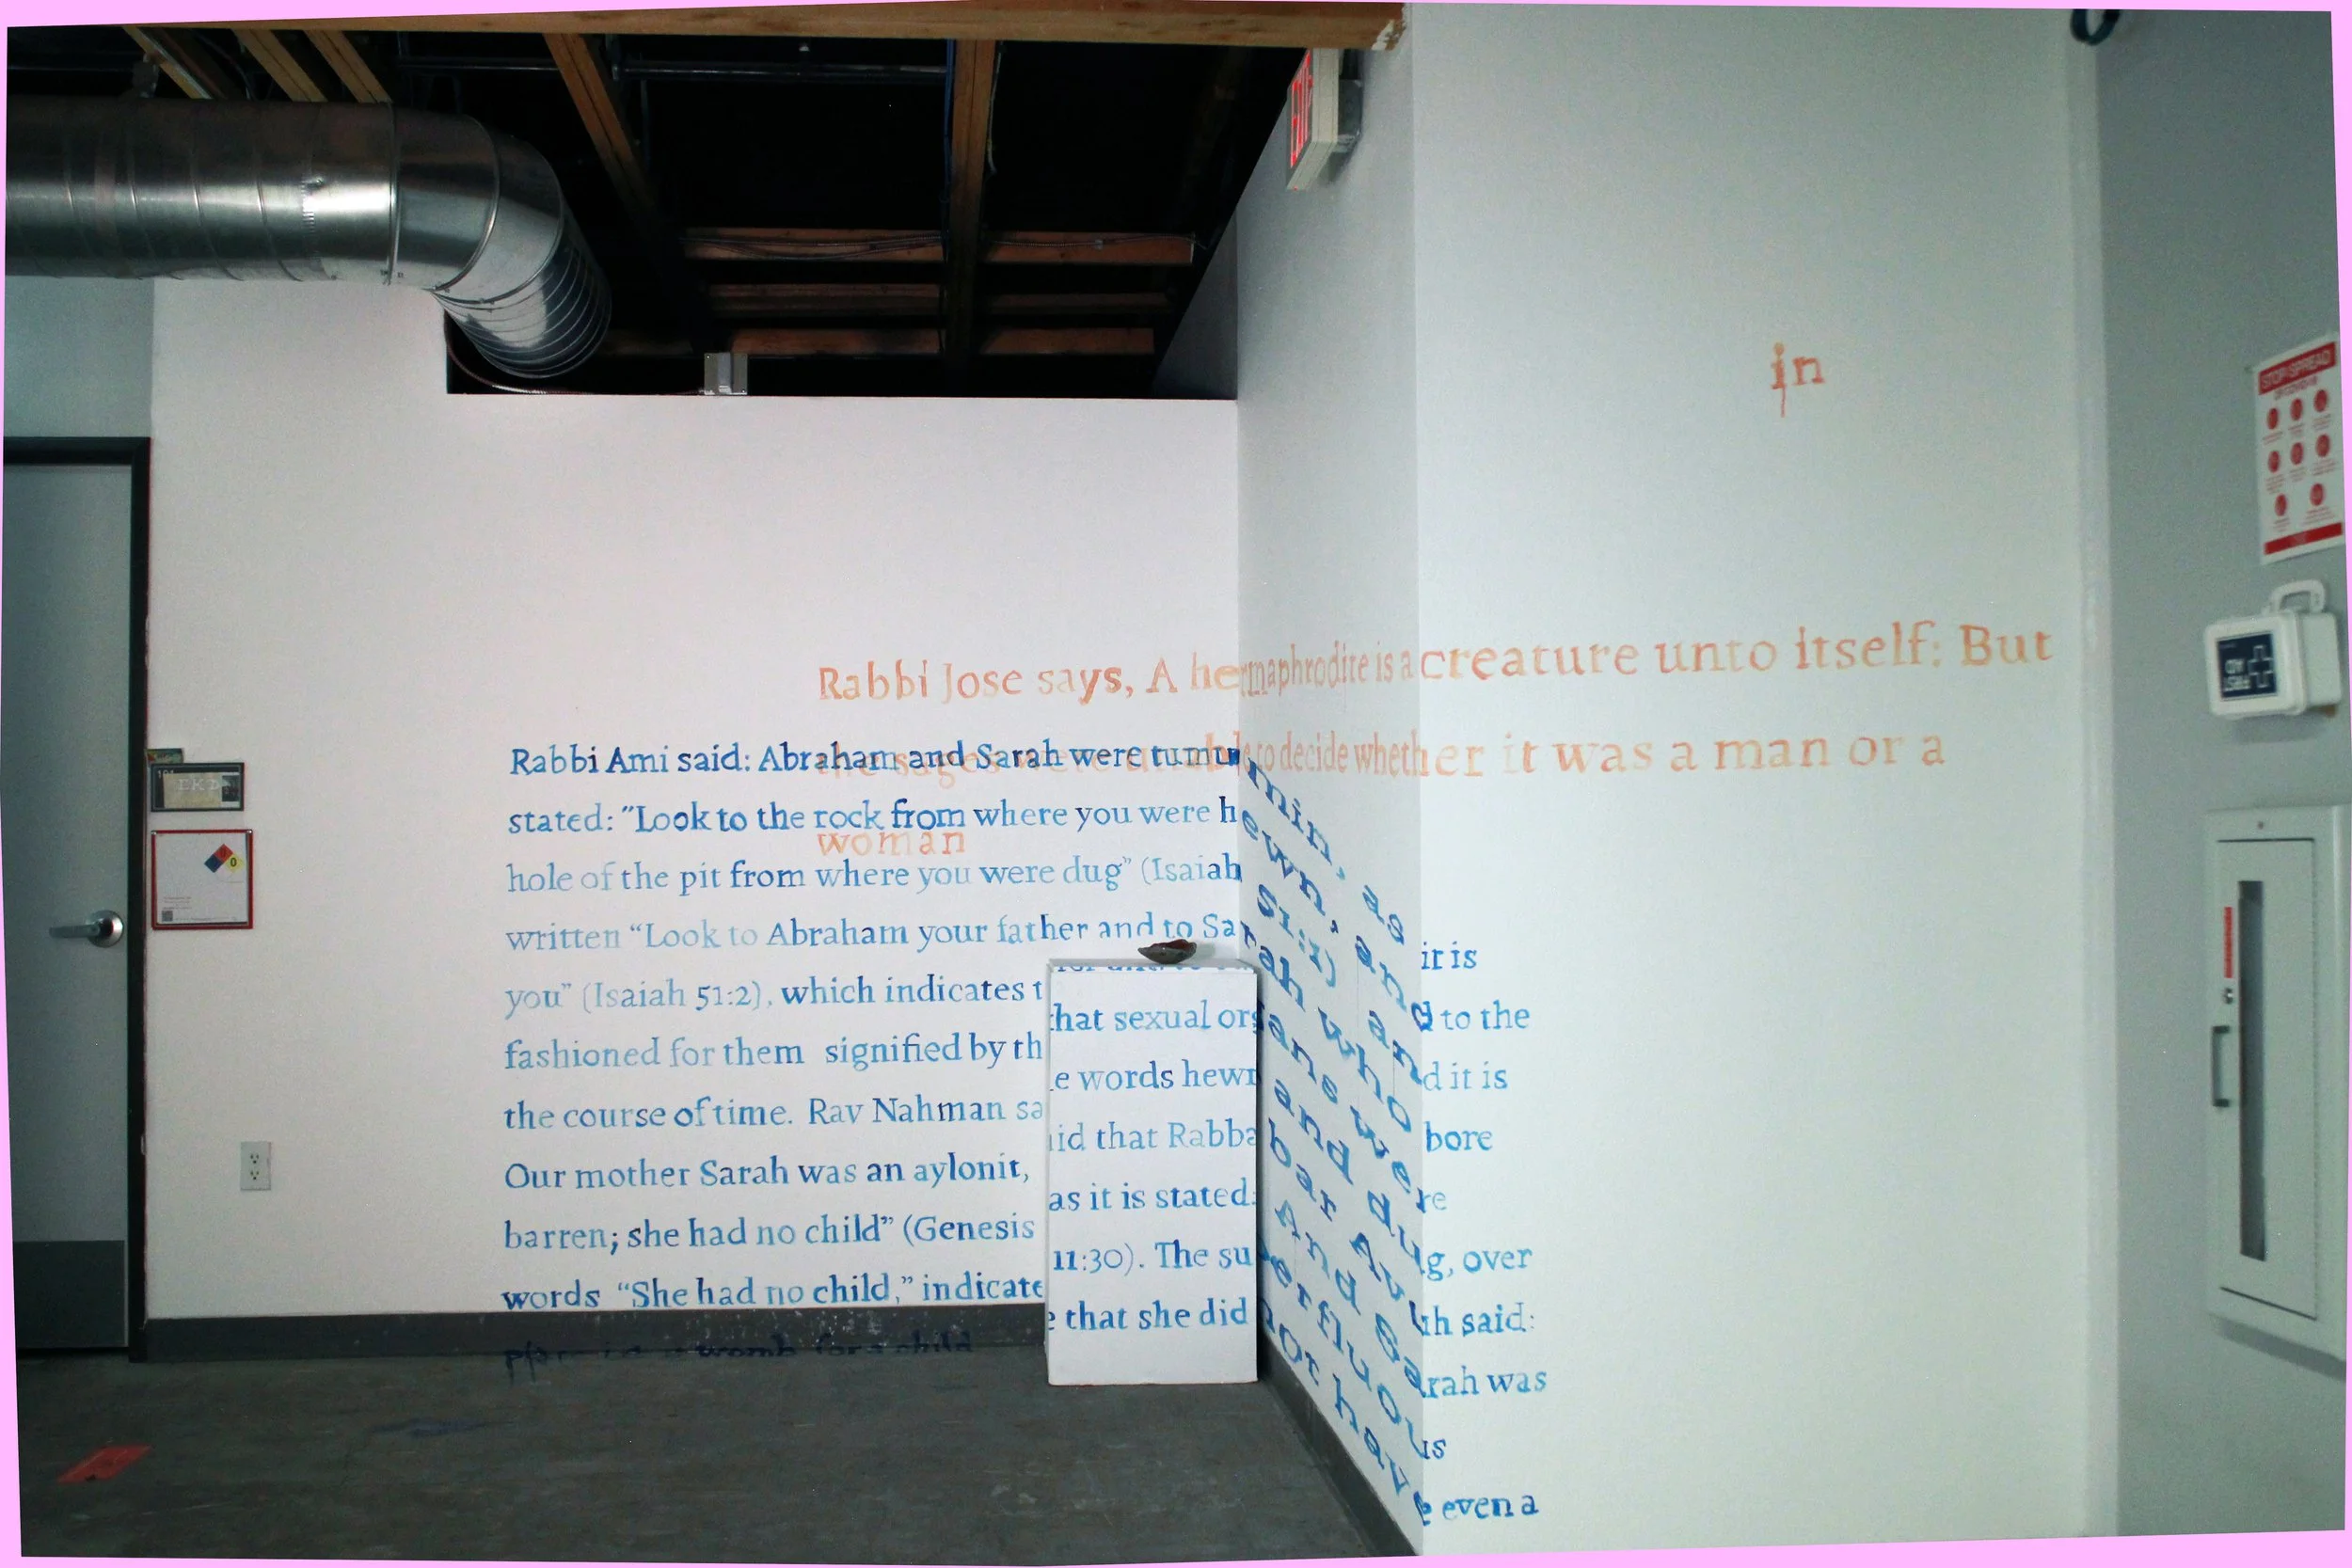 EXIT
in
STOP SPREAD
Rabbi Jose says, A hermaphrodite is a creature unto itself: But
the sages were unable to decide whether it was a man or a
woman
FIRST
AID
Rabbi Ami said: Abraham and Sarah were tumtumin, as it is
stated: "Look to the rock from where you were hewn, and to the
hole of the pit from where you were dug" (Isaiah 51:1) and it is
written "Look to Abraham your father and to Sarah who bore
you" (Isaiah 51:2), which indicates that sexual organs were
fashioned for them signified by the words hewn and dug, over
the course of time. Rav Nahman said that Rabba bar Avuh said:
Our mother Sarah was an aylonit, as it is stated: and Sarah was
barren; she had no child" (Genesis 11:30). The superfluous
words "She had no child," indicate that she did not have even a
womb for a child